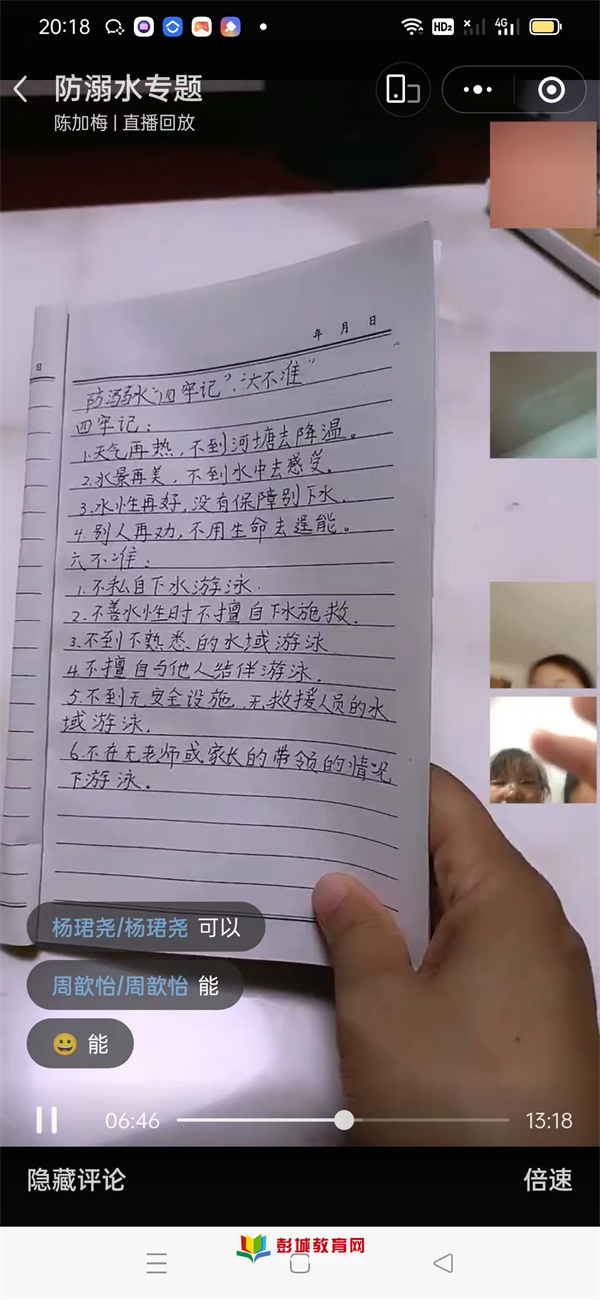 20:18
HD2
4G
防溺水专题
陈加梅 | 直播回放
年 月 日
日
防溺水“四牢记”、“六不准”
四牢记：
1.天气再热，不到河塘去降温。
2.水景再美，不到水中去感受。
3.水性再好，没有保障别下水.
4.别人再劝，不用生命去逞能。
六不准：
1.不私自下水游泳.
2.不善水性时不擅自下水施救.
3.不到不熟悉的水域游泳
4.不擅自与他人结伴游泳.
5.不到无安全设施、无救援人员的水
域游泳.
6.不在无老师或家长的带领的情况
下游泳.
杨珺尧/杨珺尧 可以
周歆怡/周歆怡 能
😀 能
06:46
13:18
隐藏评论
倍速
彭城教育网